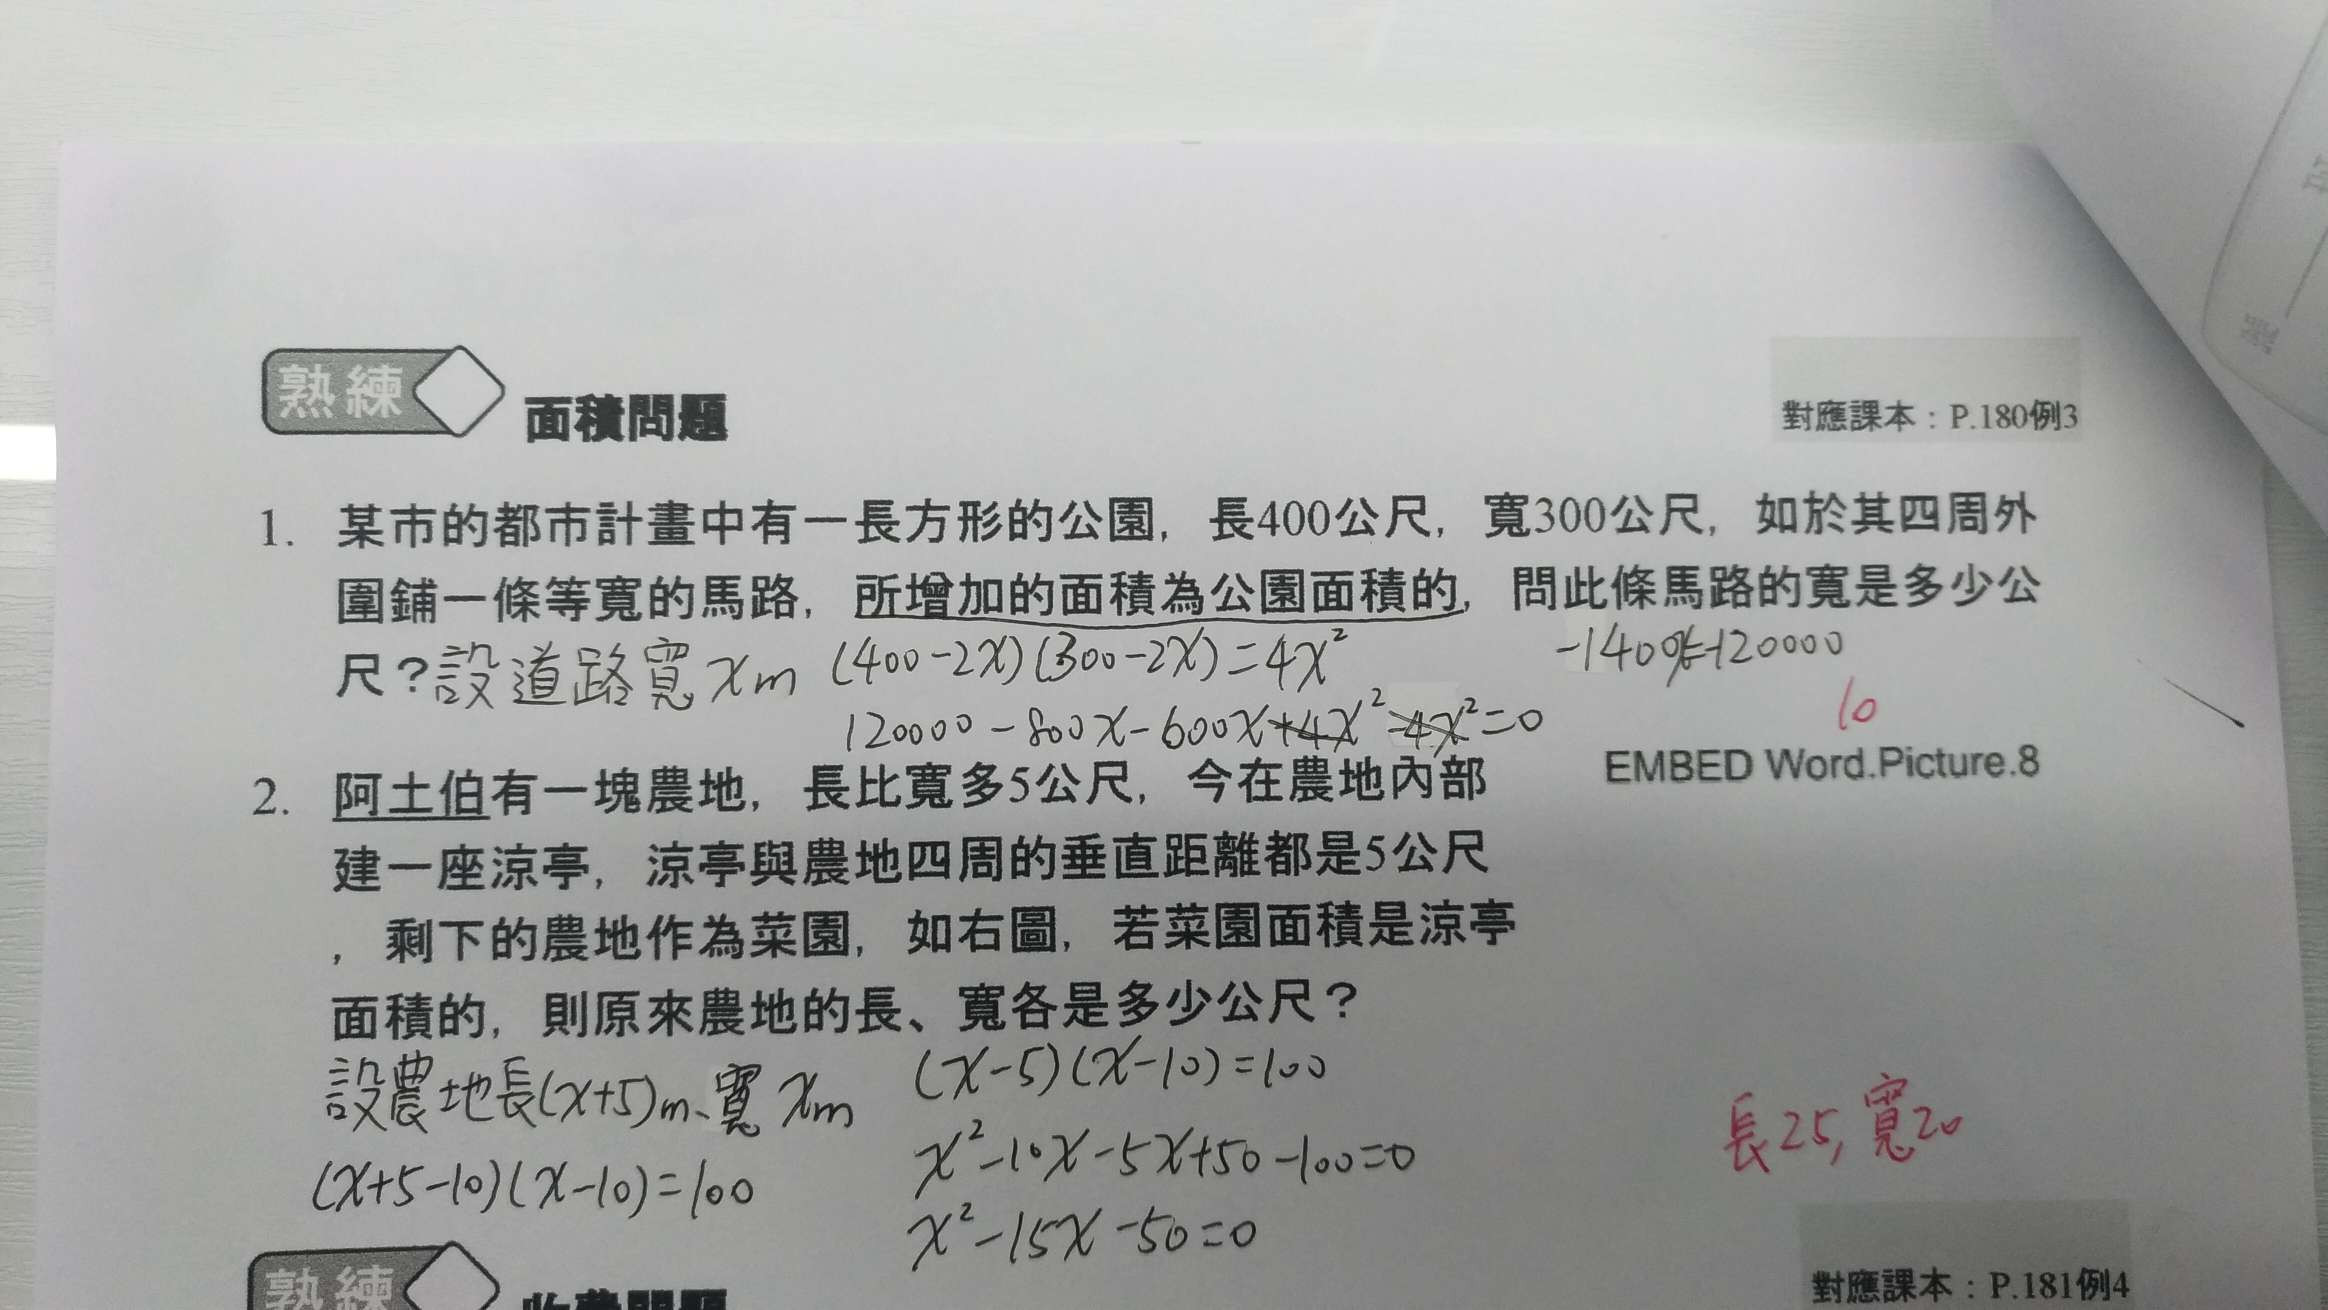 熟練 面積問題
對應課本：P.180例3
1. 某市的都市計畫中有一長方形的公園，長400公尺，寬300公尺，如於其四周外
圍鋪一條等寬的馬路，所增加的面積為公園面積的，問此條馬路的寬是多少公
尺？設道路寬 xm (400-2x)(300-2x)=4x²
-1400x=-120000
120000-800x-600x+4x²-4x²=0
10
EMBED Word.Picture.8
2. 阿土伯有一塊農地，長比寬多5公尺，今在農地內部
建一座涼亭，涼亭與農地四周的垂直距離都是5公尺
，剩下的農地作為菜園，如右圖，若菜園面積是涼亭
面積的，則原來農地的長、寬各是多少公尺？
設農地長(x+5)m、寬 xm
(x+5-10)(x-10)=100
(x-5)(x-10)=100
x²-10x-5x+50-100=0
x²-15x-50=0
長25，寬20
熟練 收費問題
對應課本：P.181例4